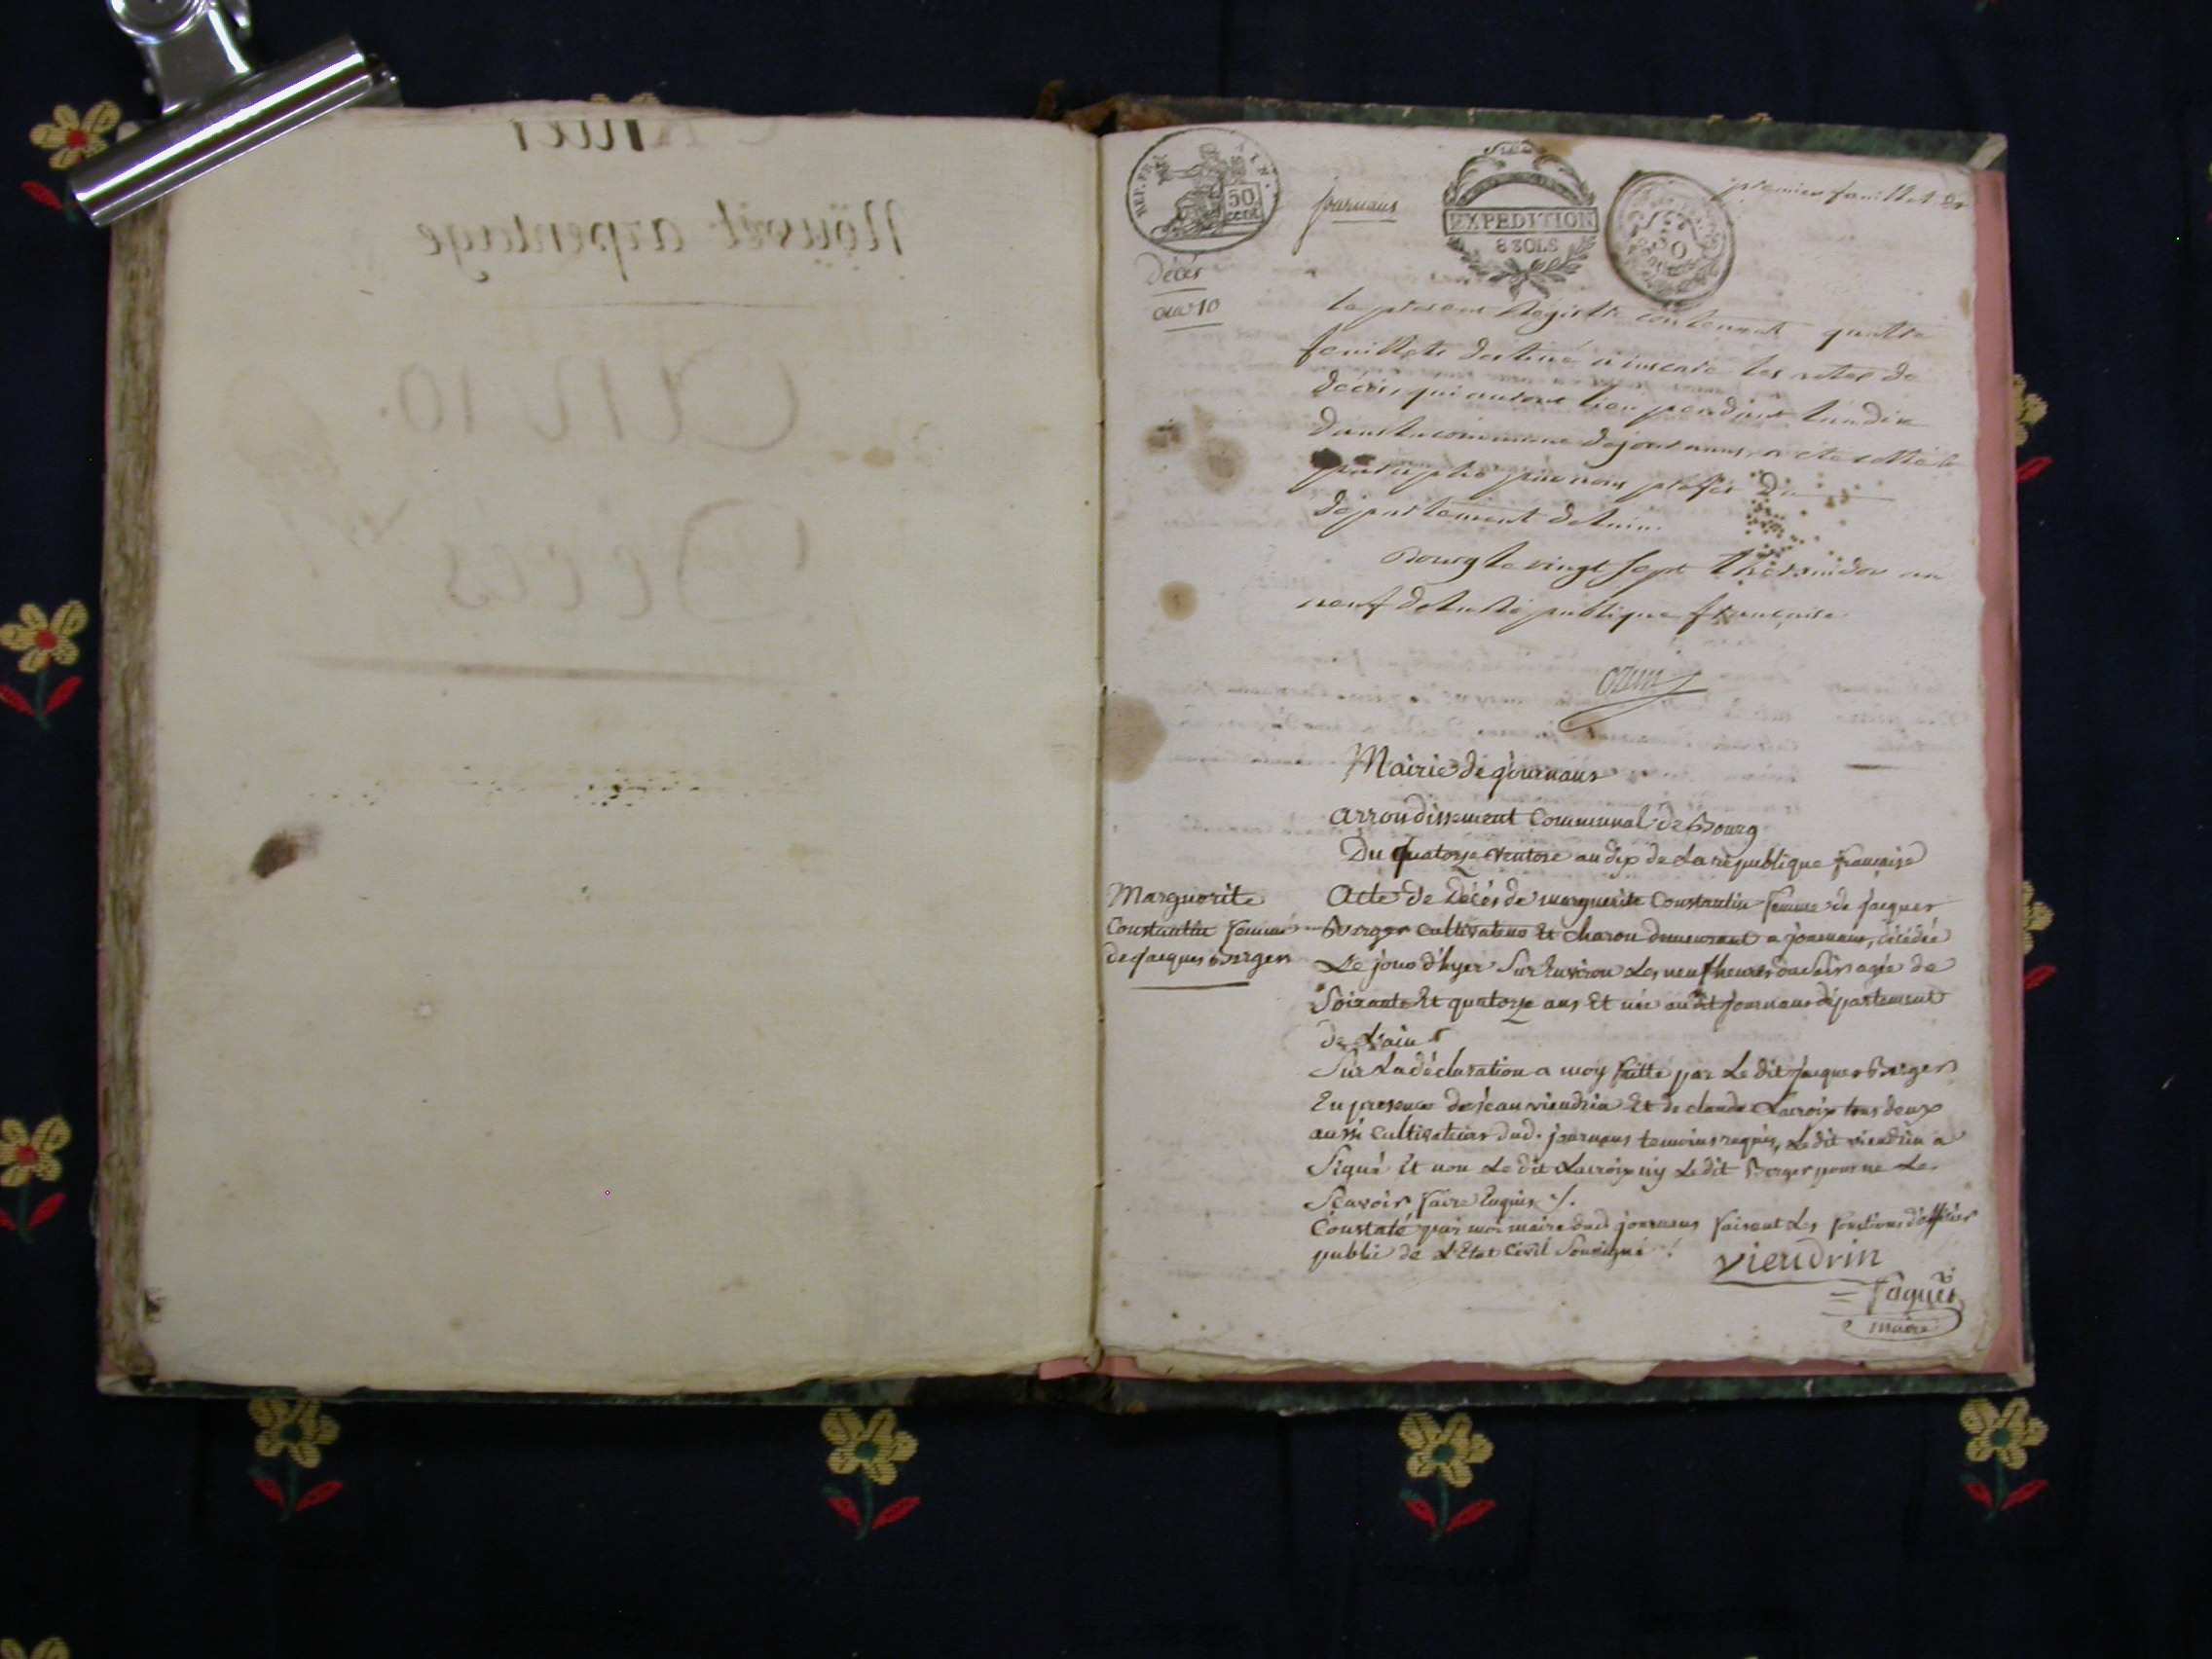 Nouvel arpentage
an 10.
Décès
REP. FRA.
50
cent.
journans
EXPEDITION
8 SOLS
50
premier feuillet
Décès
an 10
le present Registre contenant quatre
feuillets destiné a inscrire les actes de
décès, qui auront lieu pendant l'an dix
dans la commune de journans, a été cotté &
paraphé par nous préfet du
département de l'ain.
Bourg le vingt sept thermidor an
neuf de la République française
ozun
Mairie de journans
arrondissement Communal de Bourg
Du quatorze ventose an dix de la republique française
Marguerite
Constantin femme
de jacques Berger
Acte de Décés de marguerite Constantin femme de jacques
Berger cultivateur et charon demeurant a journans, décédée
Le jour d'hyer sur Environ Les neuf heures du Soir agée de
Soixante Et quatorze ans Et née au dit journans département
de L'ain
Sur La déclaration a moy faitte par Le dit jacques Berger
En presence de jean viendrin Et de claude Lacroix tous deux
aussi Cultivateurs dud. journans temoins requis, Le dit viendrin a
Signé Et non Le dit Lacroix ny Le dit Berger pour ne Le
Scavoir faire Enquis ./.
Constaté par moi maire dud. journans faisant Les fonctions d'officier
public de L'Etat Civil Soussigné ./
viendrin
faguet
maire